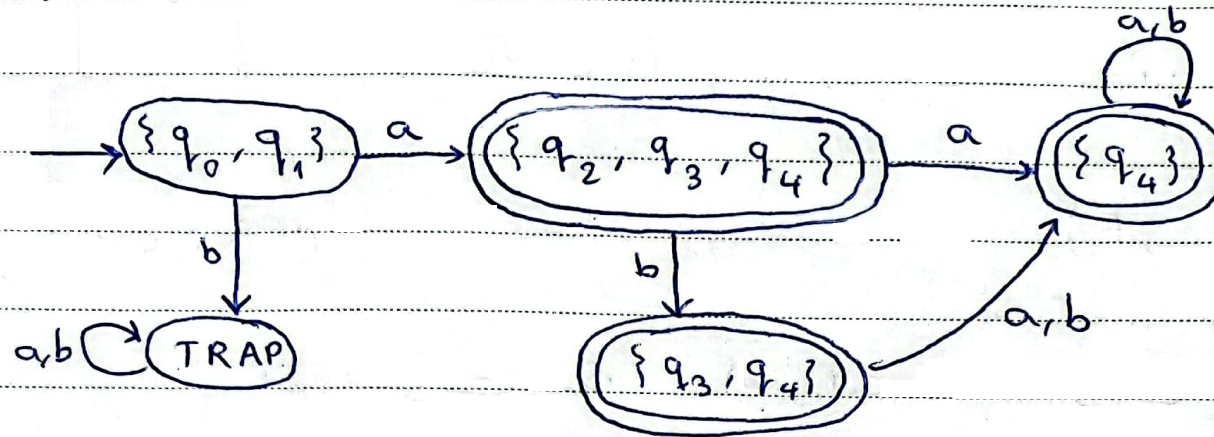 a,b
{q₀, q₁} a {q₂, q₃, q₄} a {q₄}
b b
a,b
a,b TRAP {q₃, q₄}